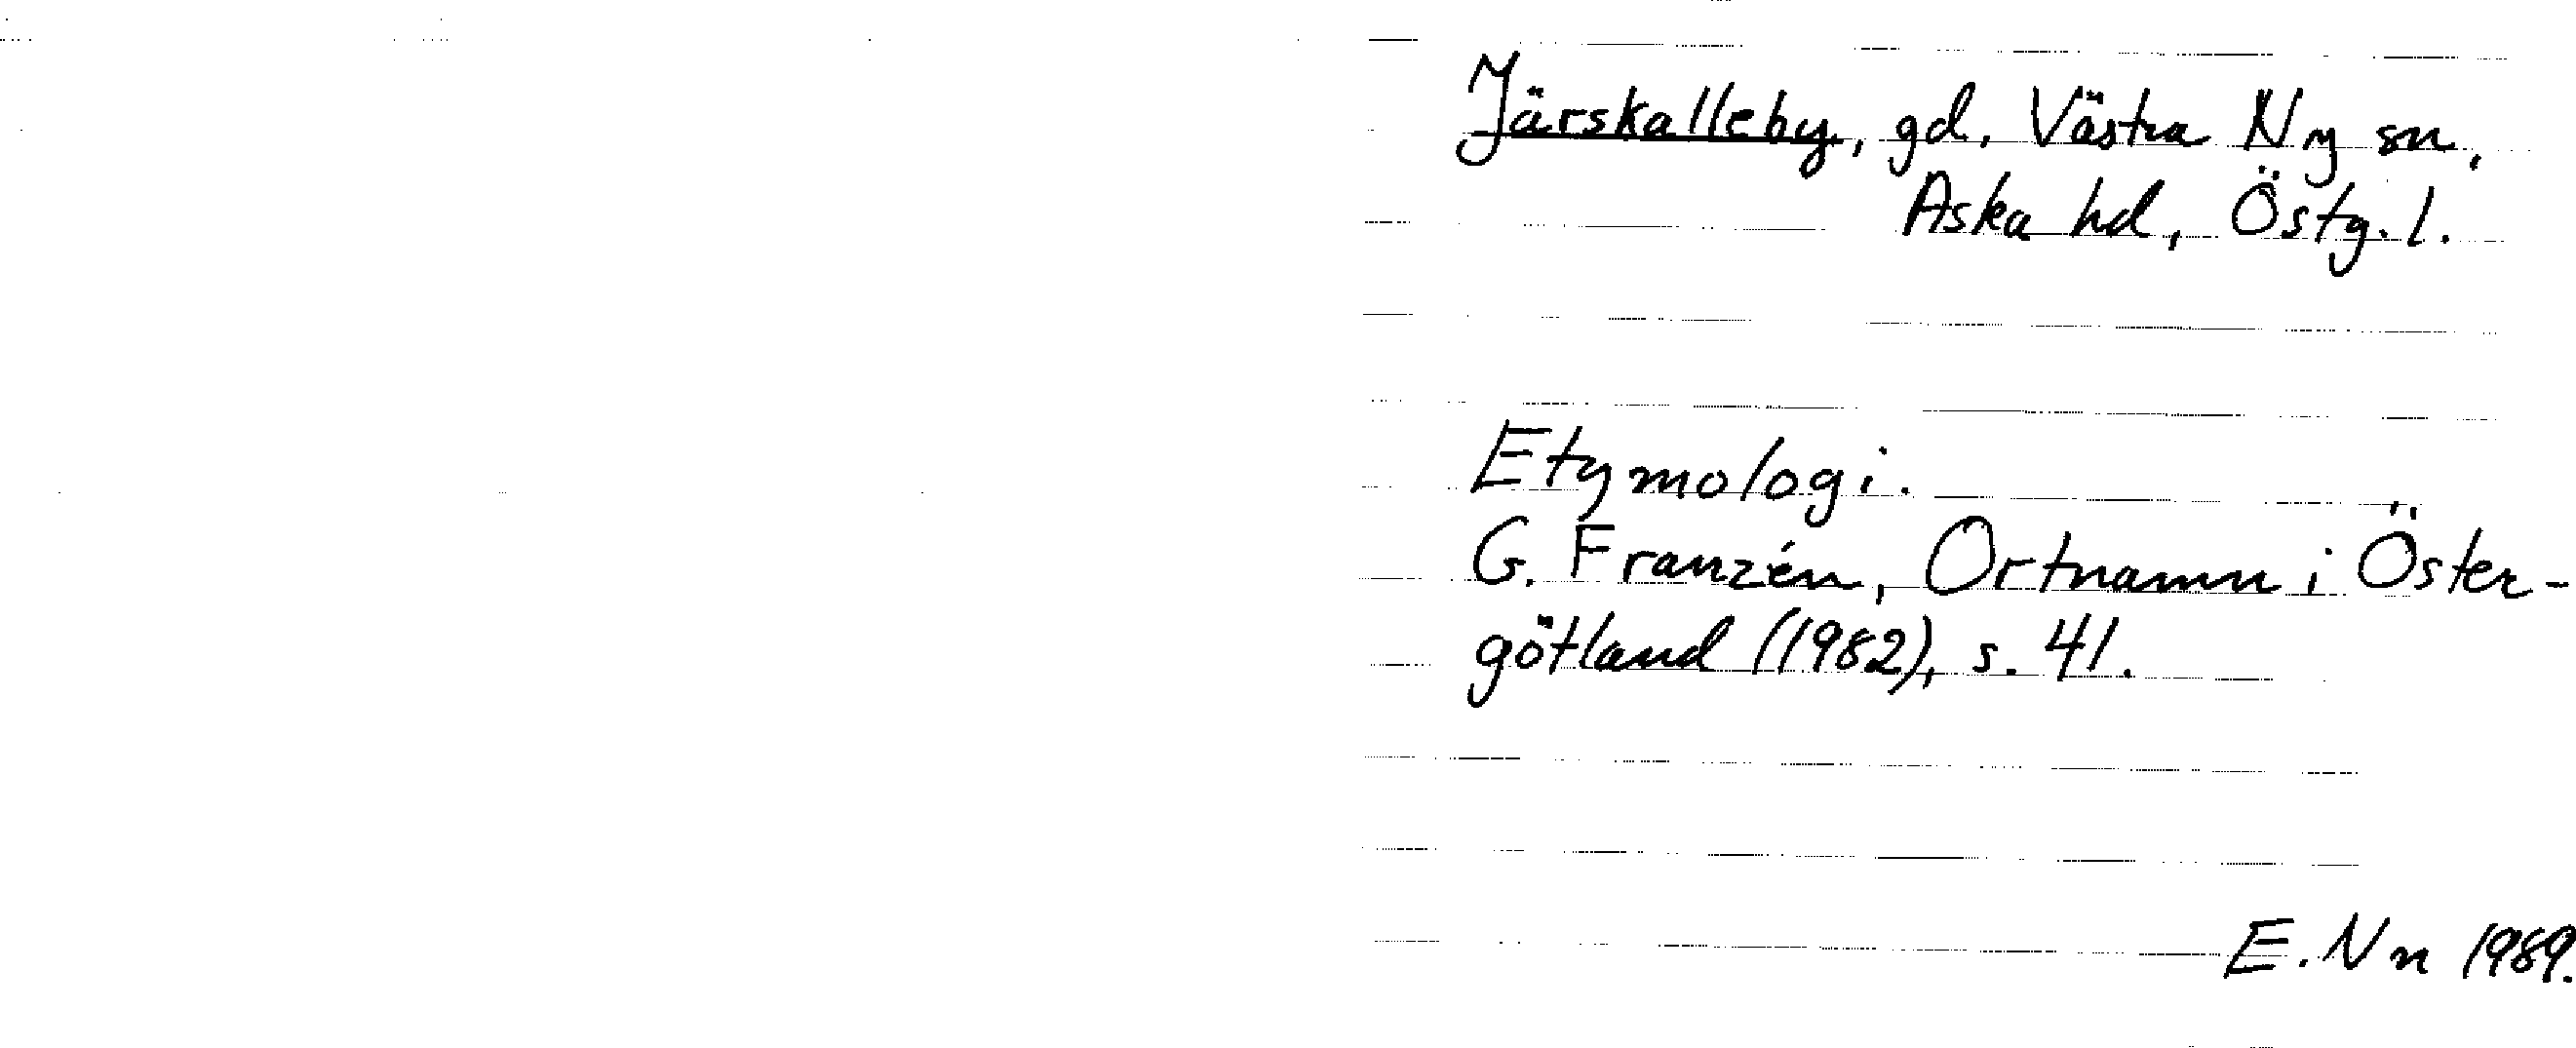 Järskalleby, gd. Västra Ny sn,
Aska hd, Östg. l.
Etymologi.
G. Franzén, Ortnamn i Öster-
götland (1982), s. 41.
E. Nn 1989.